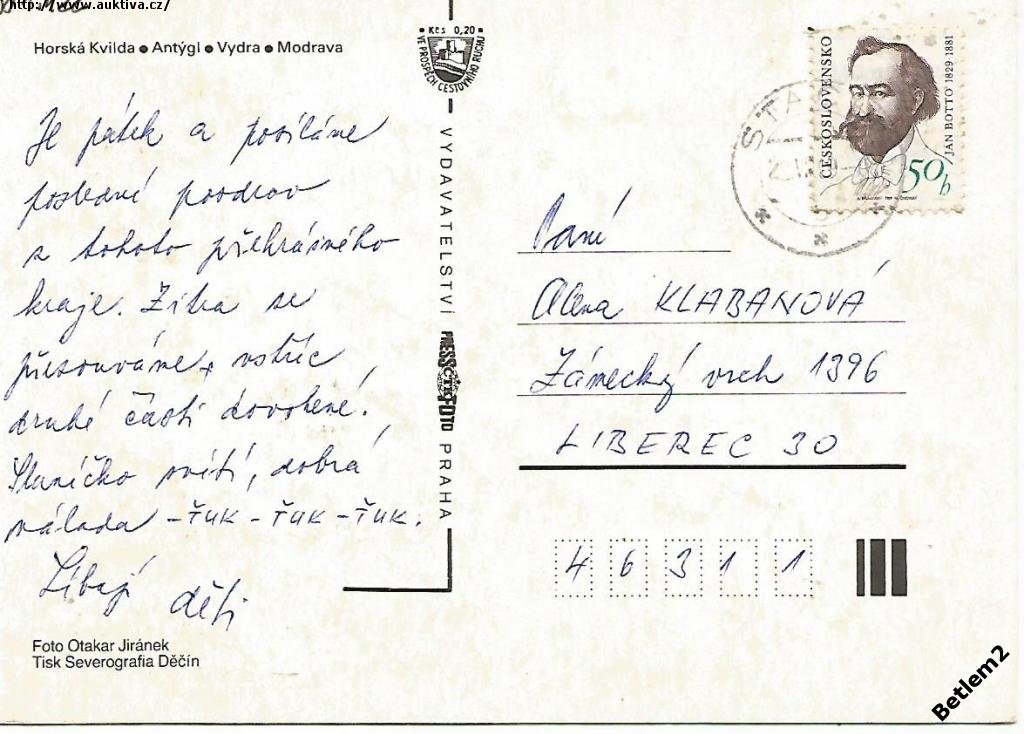 http://www.auktiva.cz/
Horská Kvilda • Antýgl • Vydra • Modrava
Kčs 0,20
VE PROSPĚCH CESTOVNÍHO RUCHU
Je pátek a posíláme
poslední pozdrav
z tohoto překrásného
kraje. Zítra se
přesouváme vstříc
druhé části dovolené.
Sluníčko svítí, dobrá
nálada -ŤUK - ŤUK - ŤUK.
Líbají děti
Foto Otakar Jiránek
Tisk Severografia Děčín
VYDAVATELSTVÍ PRESSFOTO PRAHA
ČTK
ČESKOSLOVENSKO
JAN BOTTO 1829 1881
50h
STA
Paní
Alena KLABANOVÁ
Zámecký vrch 1396
LIBEREC 30
46311
Betlem2